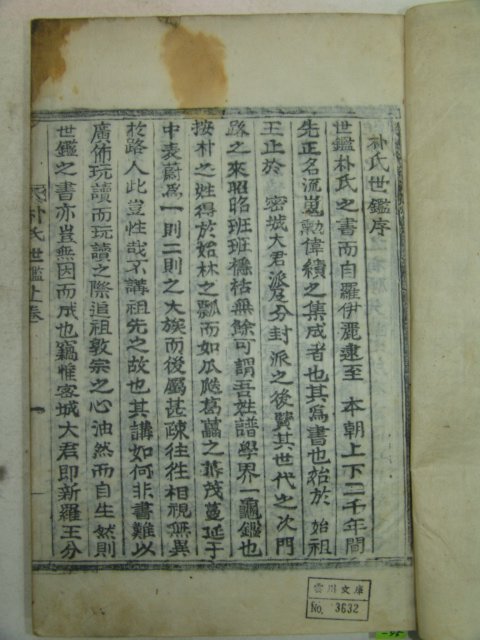 朴氏世鑑序
世鑑朴氏之書而自羅伊麗逮至 本朝上下二千年間
先正名流嵬勲偉績之集成者也其爲書也始於 始祖
王止於 密城大君派及分封派之後賢其世代之次門
路之來昭昭班班橋梏無餘可謂吾姓譜學界一龜鑑也
按朴之姓得於始林之瓢而如瓜瓞葛藟之蕃茂蔓延于
中表蔚爲一則二則之大族而後屬甚疎徃徃相視無異
於路人此豈性哉不講祖先之故也其講如何非書難以
廣佈玩讀而玩讀之際追祖敦宗之心油然而自生然則
世鑑之書亦豈無因而成也竊惟密城大君即新羅王分
朴氏世鑑上卷
一
雲川文庫
No. 3632